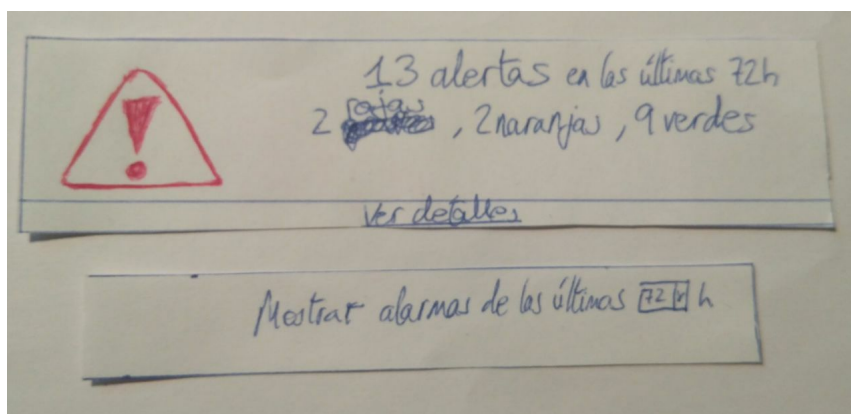 13 alertas en las últimas 72h
2 rojas, 2 naranjas, 9 verdes
Ver detalles
Mostrar alarmas de las últimas 72 h